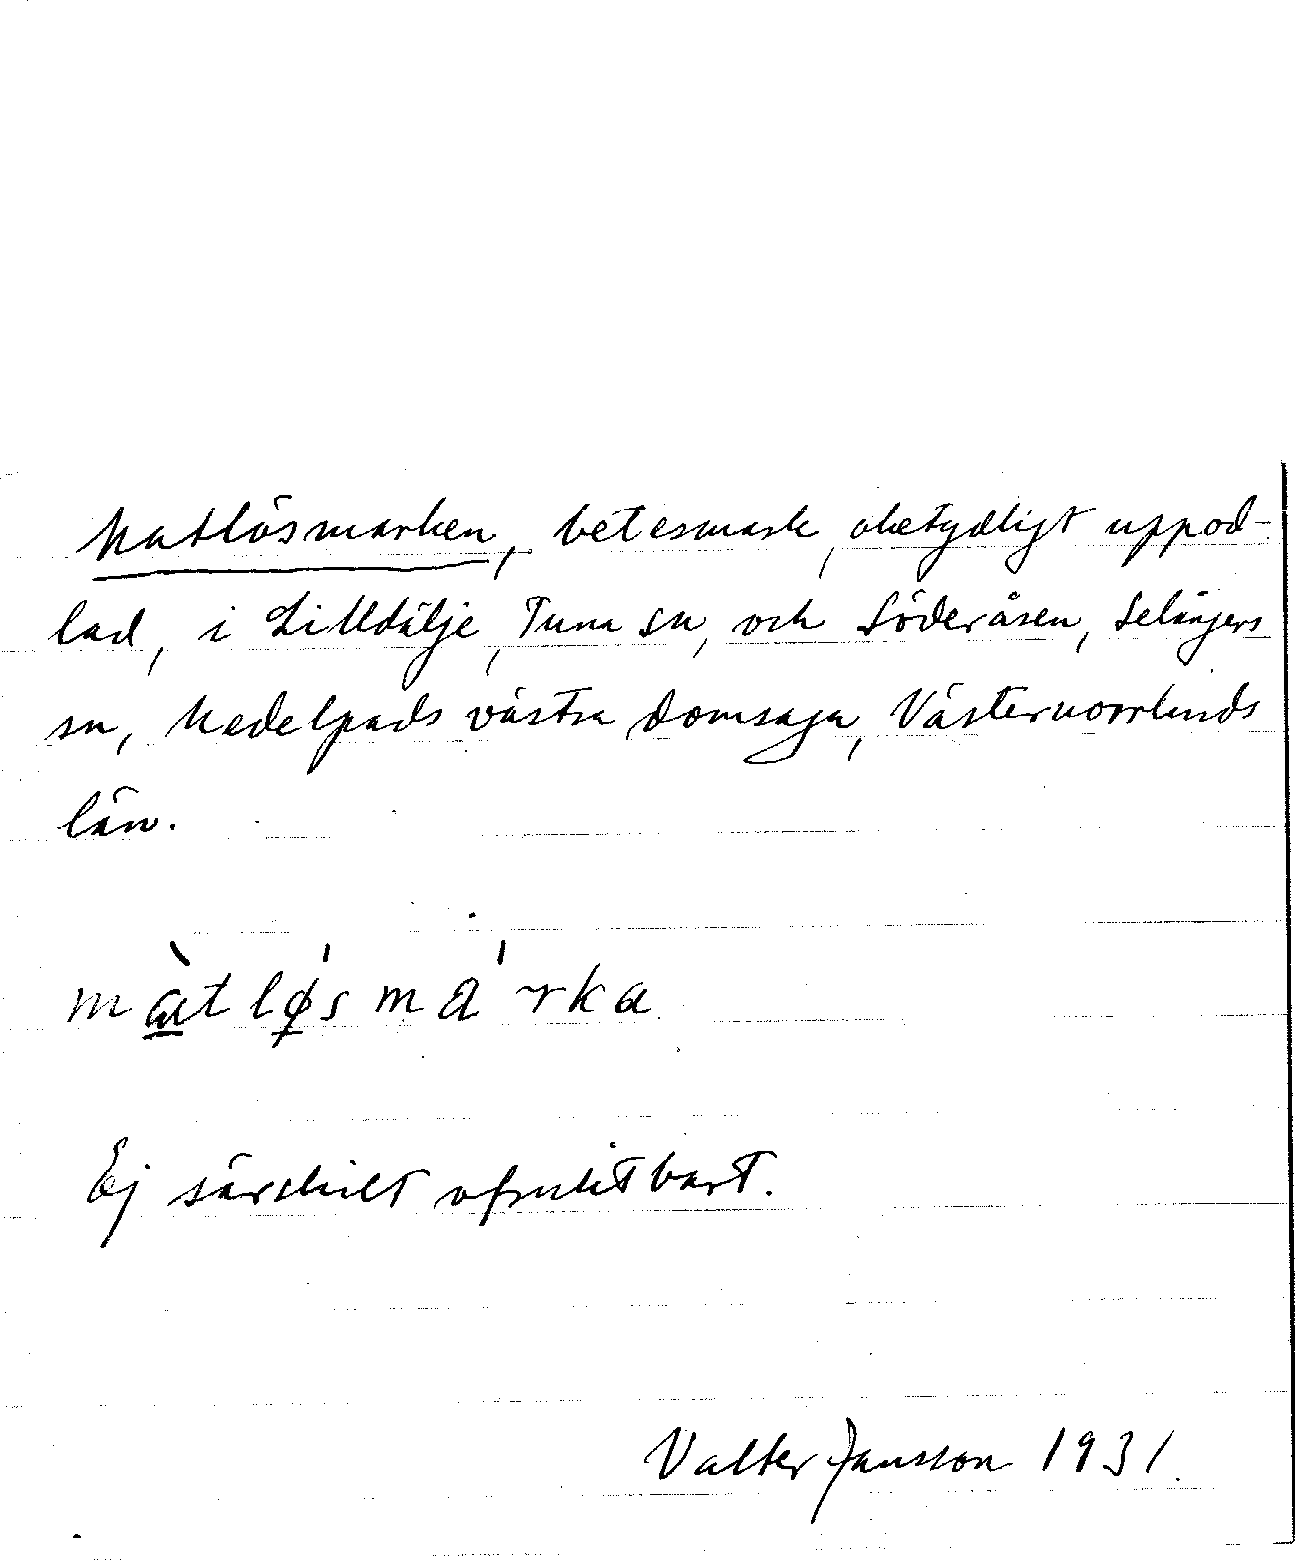 Matlösmarken, betesmark, obetydligt uppod-
lad, i Lilldälje, Tuna sn, och Söderåsen, Selångers
sn, Medelpads västra domsaga, Västernorrlands
län.
màtlǿsmárka
Ej särskilt ofruktbart.
Valter Jansson 1931.